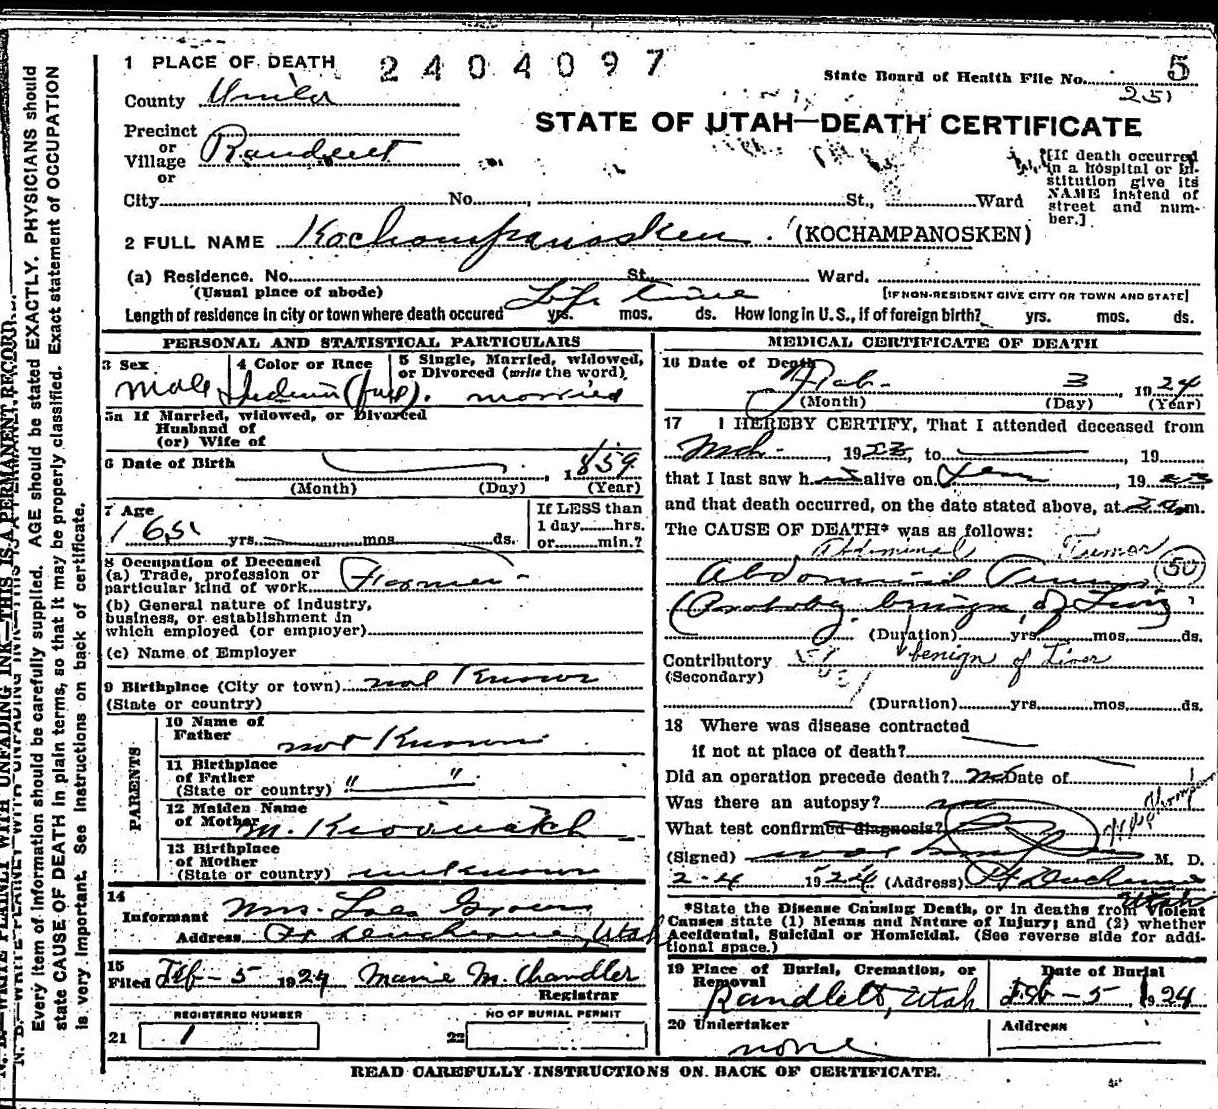 1 PLACE OF DEATH
2404097
State Board of Health File No. 5
251
County
STATE OF UTAH—DEATH CERTIFICATE
Precinct
or
Village Randlett
or
[If death occurred
in a hospital or in-
stitution give its
NAME instead of
street and num-
ber.]
City No. St., Ward
2 FULL NAME Kochampanosken (KOCHAMPANOSKEN)
(a) Residence. No. St. Ward.
(Usual place of abode) Life time [IF NON-RESIDENT GIVE CITY OR TOWN AND STATE]
Length of residence in city or town where death occured yrs. mos. ds. How long in U. S., if of foreign birth? yrs. mos. ds.
PERSONAL AND STATISTICAL PARTICULARS
3 Sex 4 Color or Race 5 Single, Married, widowed,
or Divorced (write the word)
Male Indian (full). married
5a If Married, widowed, or Divorced
Husband of
(or) Wife of
6 Date of Birth 1859
(Month) (Day) (Year)
7 Age If LESS than
1 day hrs.
or min.?
65 yrs. mos. ds.
8 Occupation of Deceased
(a) Trade, profession or
particular kind of work Farmer
(b) General nature of industry,
business, or establishment in
which employed (or employer)
(c) Name of Employer
9 Birthplace (City or town) not Known
(State or country)
PARENTS
10 Name of
Father not Known
11 Birthplace
of Father
(State or country) " "
12 Maiden Name
of Mother
13 Birthplace
of Mother
(State or country) unknown
14
Informant Mrs.
Address Ft Duchesne, Utah
15
Filed Feb-5 1924 Marie M. Chandler
Registrar
REGISTERED NUMBER NO OF BURIAL PERMIT
21 1 22
MEDICAL CERTIFICATE OF DEATH
16 Date of Death
Feb. 3 1924
(Month) (Day) (Year)
17 I HEREBY CERTIFY, That I attended deceased from
Mch. 1923, to , 19
that I last saw h alive on , 1923
and that death occurred, on the date stated above, at m.
The CAUSE OF DEATH* was as follows:
Abdominal Tumor
Abdominal Tumor 50
(Probably benign of Liver
(Duration) yrs. mos. ds.
Contributory benign of Liver
(Secondary)
(Duration) yrs. mos. ds.
18 Where was disease contracted
if not at place of death?
Did an operation precede death? no Date of
Was there an autopsy? no
What test confirmed diagnosis?
(Signed) M. D.
2-4 1924 (Address) Ft Duchesne
Utah
*State the Disease Causing Death, or in deaths from Violent
Causes state (1) Means and Nature of Injury; and (2) whether
Accidental, Suicidal or Homicidal. (See reverse side for addi-
tional space.)
19 Place of Burial, Cremation, or
Removal
Randlett, Utah
Date of Burial
Feb-5, 1924
20 Undertaker Address
none
READ CAREFULLY INSTRUCTIONS ON BACK OF CERTIFICATE.
N. B.—WRITE PLAINLY WITH UNFADING INK—THIS IS A PERMANENT RECORD
Every item of information should be carefully supplied. AGE should be stated EXACTLY. PHYSICIANS should
state CAUSE OF DEATH in plain terms, so that it may be properly classified. Exact statement of OCCUPATION
is very important. See instructions on back of certificate.